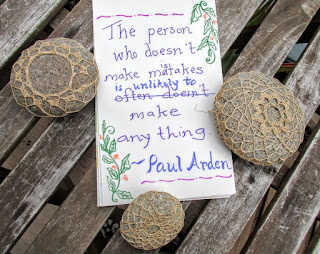 The person
who doesn't
make mistakes
is unlikely to
often doesn't
make
any thing.
~ Paul Arden